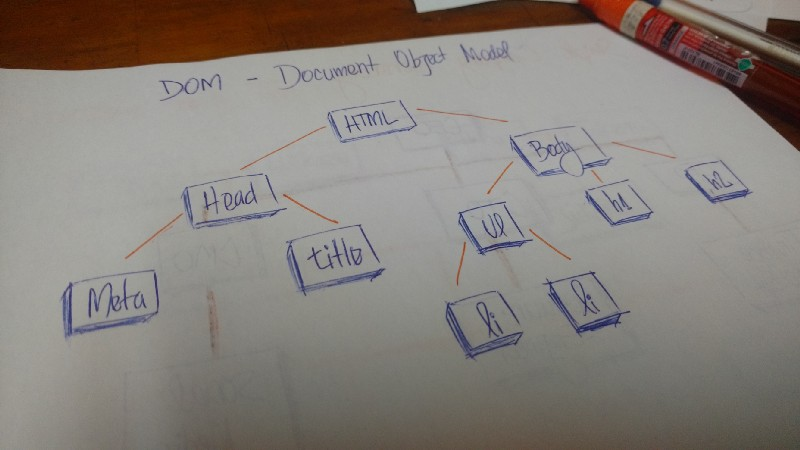 DOM - Document Object Model
HTML
Head
Body
Meta
title
ul
h1
h2
li
li